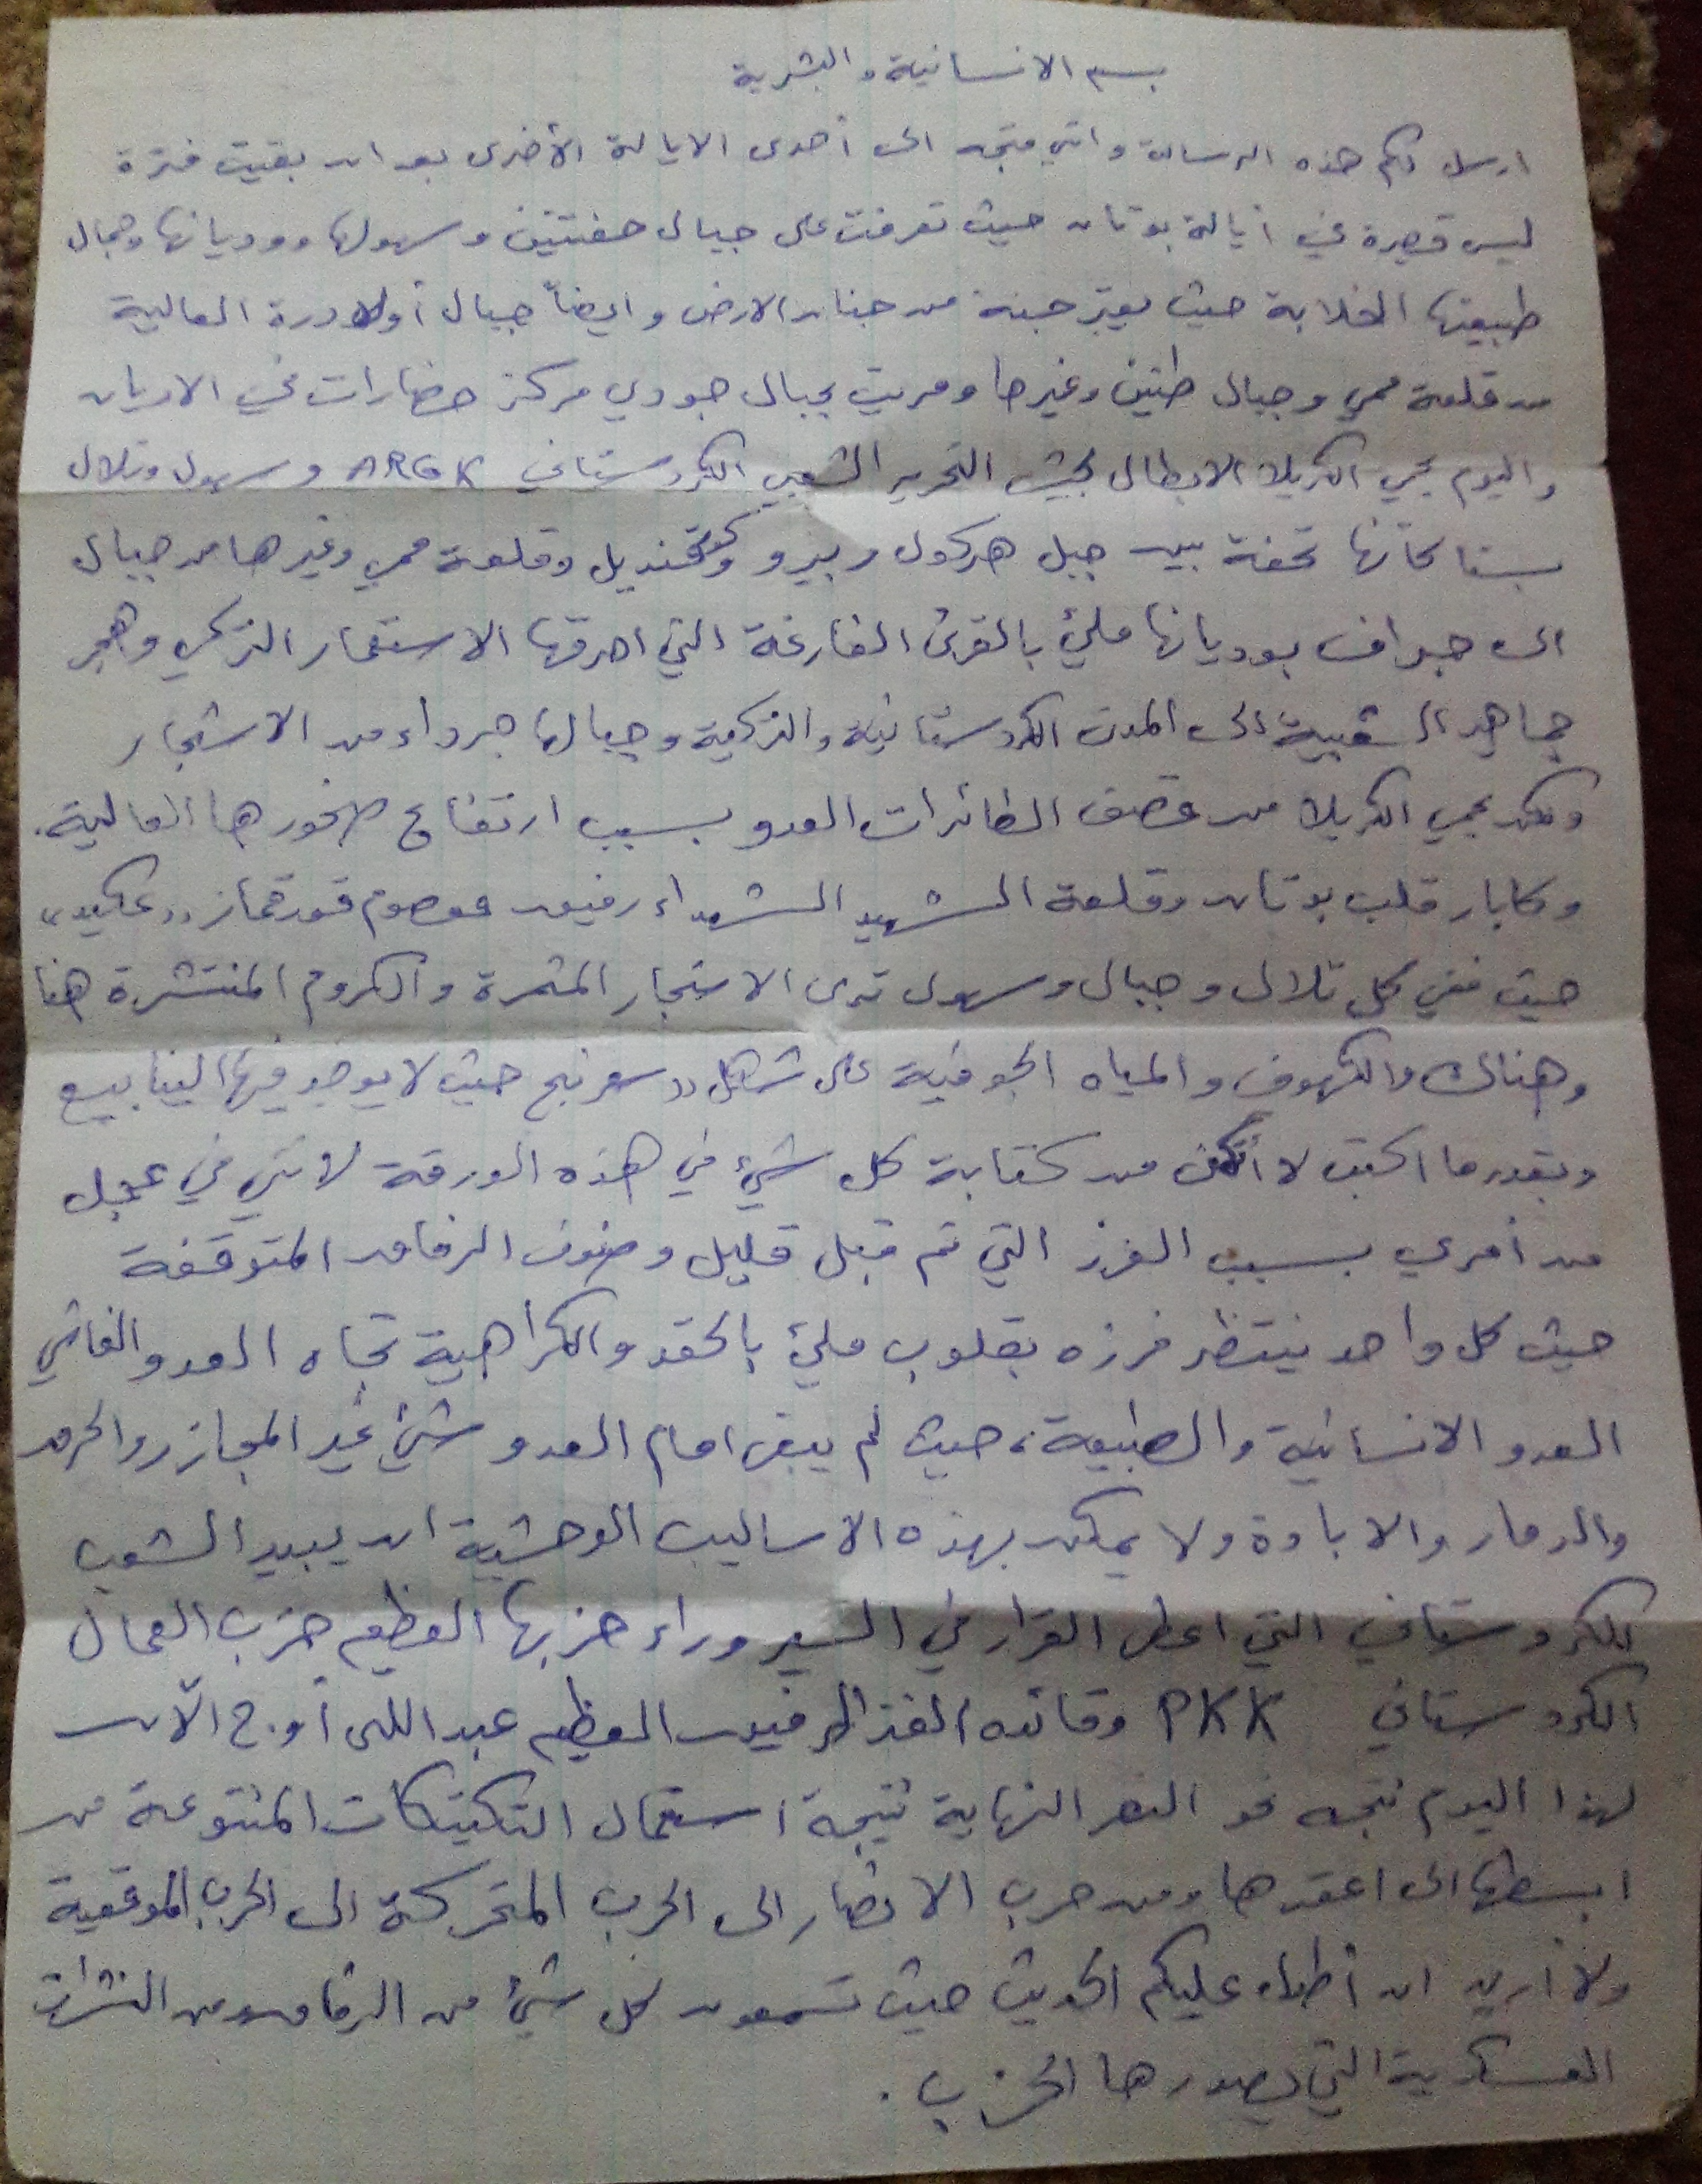 بسم الانسانية والبشرية
ارسل لكم هذه الرسالة وانني متجه الى أحدى الايالة الأخرى بعد ان بقيت فترة
ليس قصيرة في أيالة بوتان حيث تعرفت على جبال هفتنين وسهولها ووديانها وجمال
طبيعتها الخلابة حيث يعتبر جنة من جنان الارض وايضاً جبال أولادرة العالية
من قلعة ممي وجبال طنين وغيرها ومريت بجبال جودي مركز حضارات في الاديان
واليوم يحمي الكريلا الابطال لجيش التحرير الشعبي الكردستاني ARGK وسهول وتلال
بستا كأنها تحفة بين جبل هركول وبيرو وقنديل وقلعة ممي وغيرها من جبال
الى جيراف بوديانها مليئ بالقرى الفارغة التي احرقها الاستعمار التركي وهجر
جماهير الشعبية الى المدن الكردستانية والتركية وجبالها جرداء من الاشجار
ولكن يحمي الكريلا من قصف الطائرات العدو بسبب ارتفاع صخورها العالية.
وكابار قلب بوتان وقلعة الشهيد الشهداء رفيق معصوم قورقماز ((عكيد))
حيث ففي كل تلال وجبال وسهول ترى الاشجار المثمرة والكروم المنتشرة هنا
وهناك والكهوف والمياه الجوفية على شكل ((سهرنج حيث لا يوجد فيها الينابيع
وبقدر ما اكتب لا أتمكن من كتابة كل شيئ في هذه الورقة لانني في عجل
من أمري بسبب الفرز التي تم قبل قليل وصفوف الرفاق المتوقفة
حيث كل واحد ينتظر فرزه بقلوب مليئ بالحقد والكراهية تجاه العدو الفاشي
العدو الانسانية والطبيعة، حيث لم يبقى امام العدو شيئ غير المجازر والحرق
والدمار والابادة ولا يمكن بهذه الاساليب الوحشية ان يبيد الشعب
الكردستاني التي اعطى القرار في السير وراء حزبها العظيم حزب العمال
الكردستاني PKK وقائده الفذ الرفيق العظيم عبد الله أوج آلان
لهذا اليوم نتجه نحو النصر النهاية نتيجة استعمال التكتيكات المتنوعة من
ابسطها الى اعقدها ومن حرب الانصار الى الحرب المتحركة الى الحرب الموقعية
ولا أريد ان أطول عليكم الحديث حيث تسمعون كل شيئ من الرفاق ومن النشرات
العسكرية التي يصدرها الحزب.